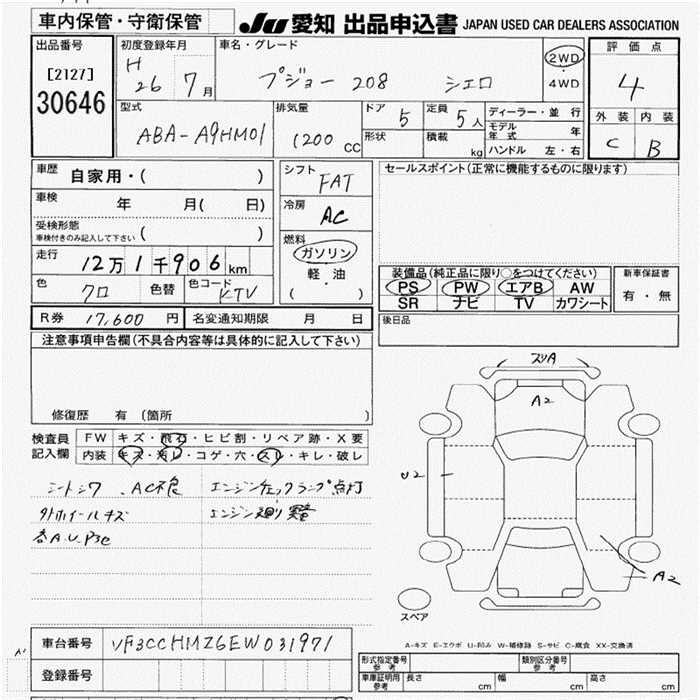 車内保管・守衛保管
JU 愛知 出品申込書 JAPAN USED CAR DEALERS ASSOCIATION
出品番号
[2127]
30646
初度登録年月
H
26 7月
車名・グレード
プジョー 208 シエロ
2WD
・
4WD
評価点
4
外装 内装
C B
型式
ABA-A9HM01
排気量
1200 CC
ドア 5
形状
定員 5人
積載 kg
ディーラー・並行
モデル年式 年
ハンドル 左・右
車歴 自家用・( )
車検 年 月( 日)
受検形態
車検付きのみ記入して下さい ( )
走行 12万1千906km
色 クロ 色替 色コード KTV
シフト FAT
冷房 AC
燃料
ガソリン
軽・油
( )
セールスポイント(正常に機能するものに限ります)
装備品(純正品に限り○をつけてください)
PS PW エアB AW
SR ナビ TV カワシート
新車保証書
有・無
R券 17,600円 名変通知期限 月 日
後日品
注意事項申告欄(不具合内容等は具体的に記入して下さい)
修復歴 有(箇所 )
検査員記入欄
FW キズ・飛石・ヒビ割・リペア跡・X要
内装 キズ・汚レ・コゲ・穴・スレ・キレ・破レ
シートシワ . AC不良 エンジンチェックランプ点灯
外ホイールキズ エンジン廻り 異音
各A.U.
スリA
A2
U2
A2
スペア
A-キズ E-エクボ U-凹み W-補修跡 S-サビ C-腐食 XX-交換済
車台番号 VF3CCHMZ6EW031971
登録番号
形式指定番号
参考
類別区分番号
参考
車庫証明用
参考
長さ cm 幅 cm 高さ cm